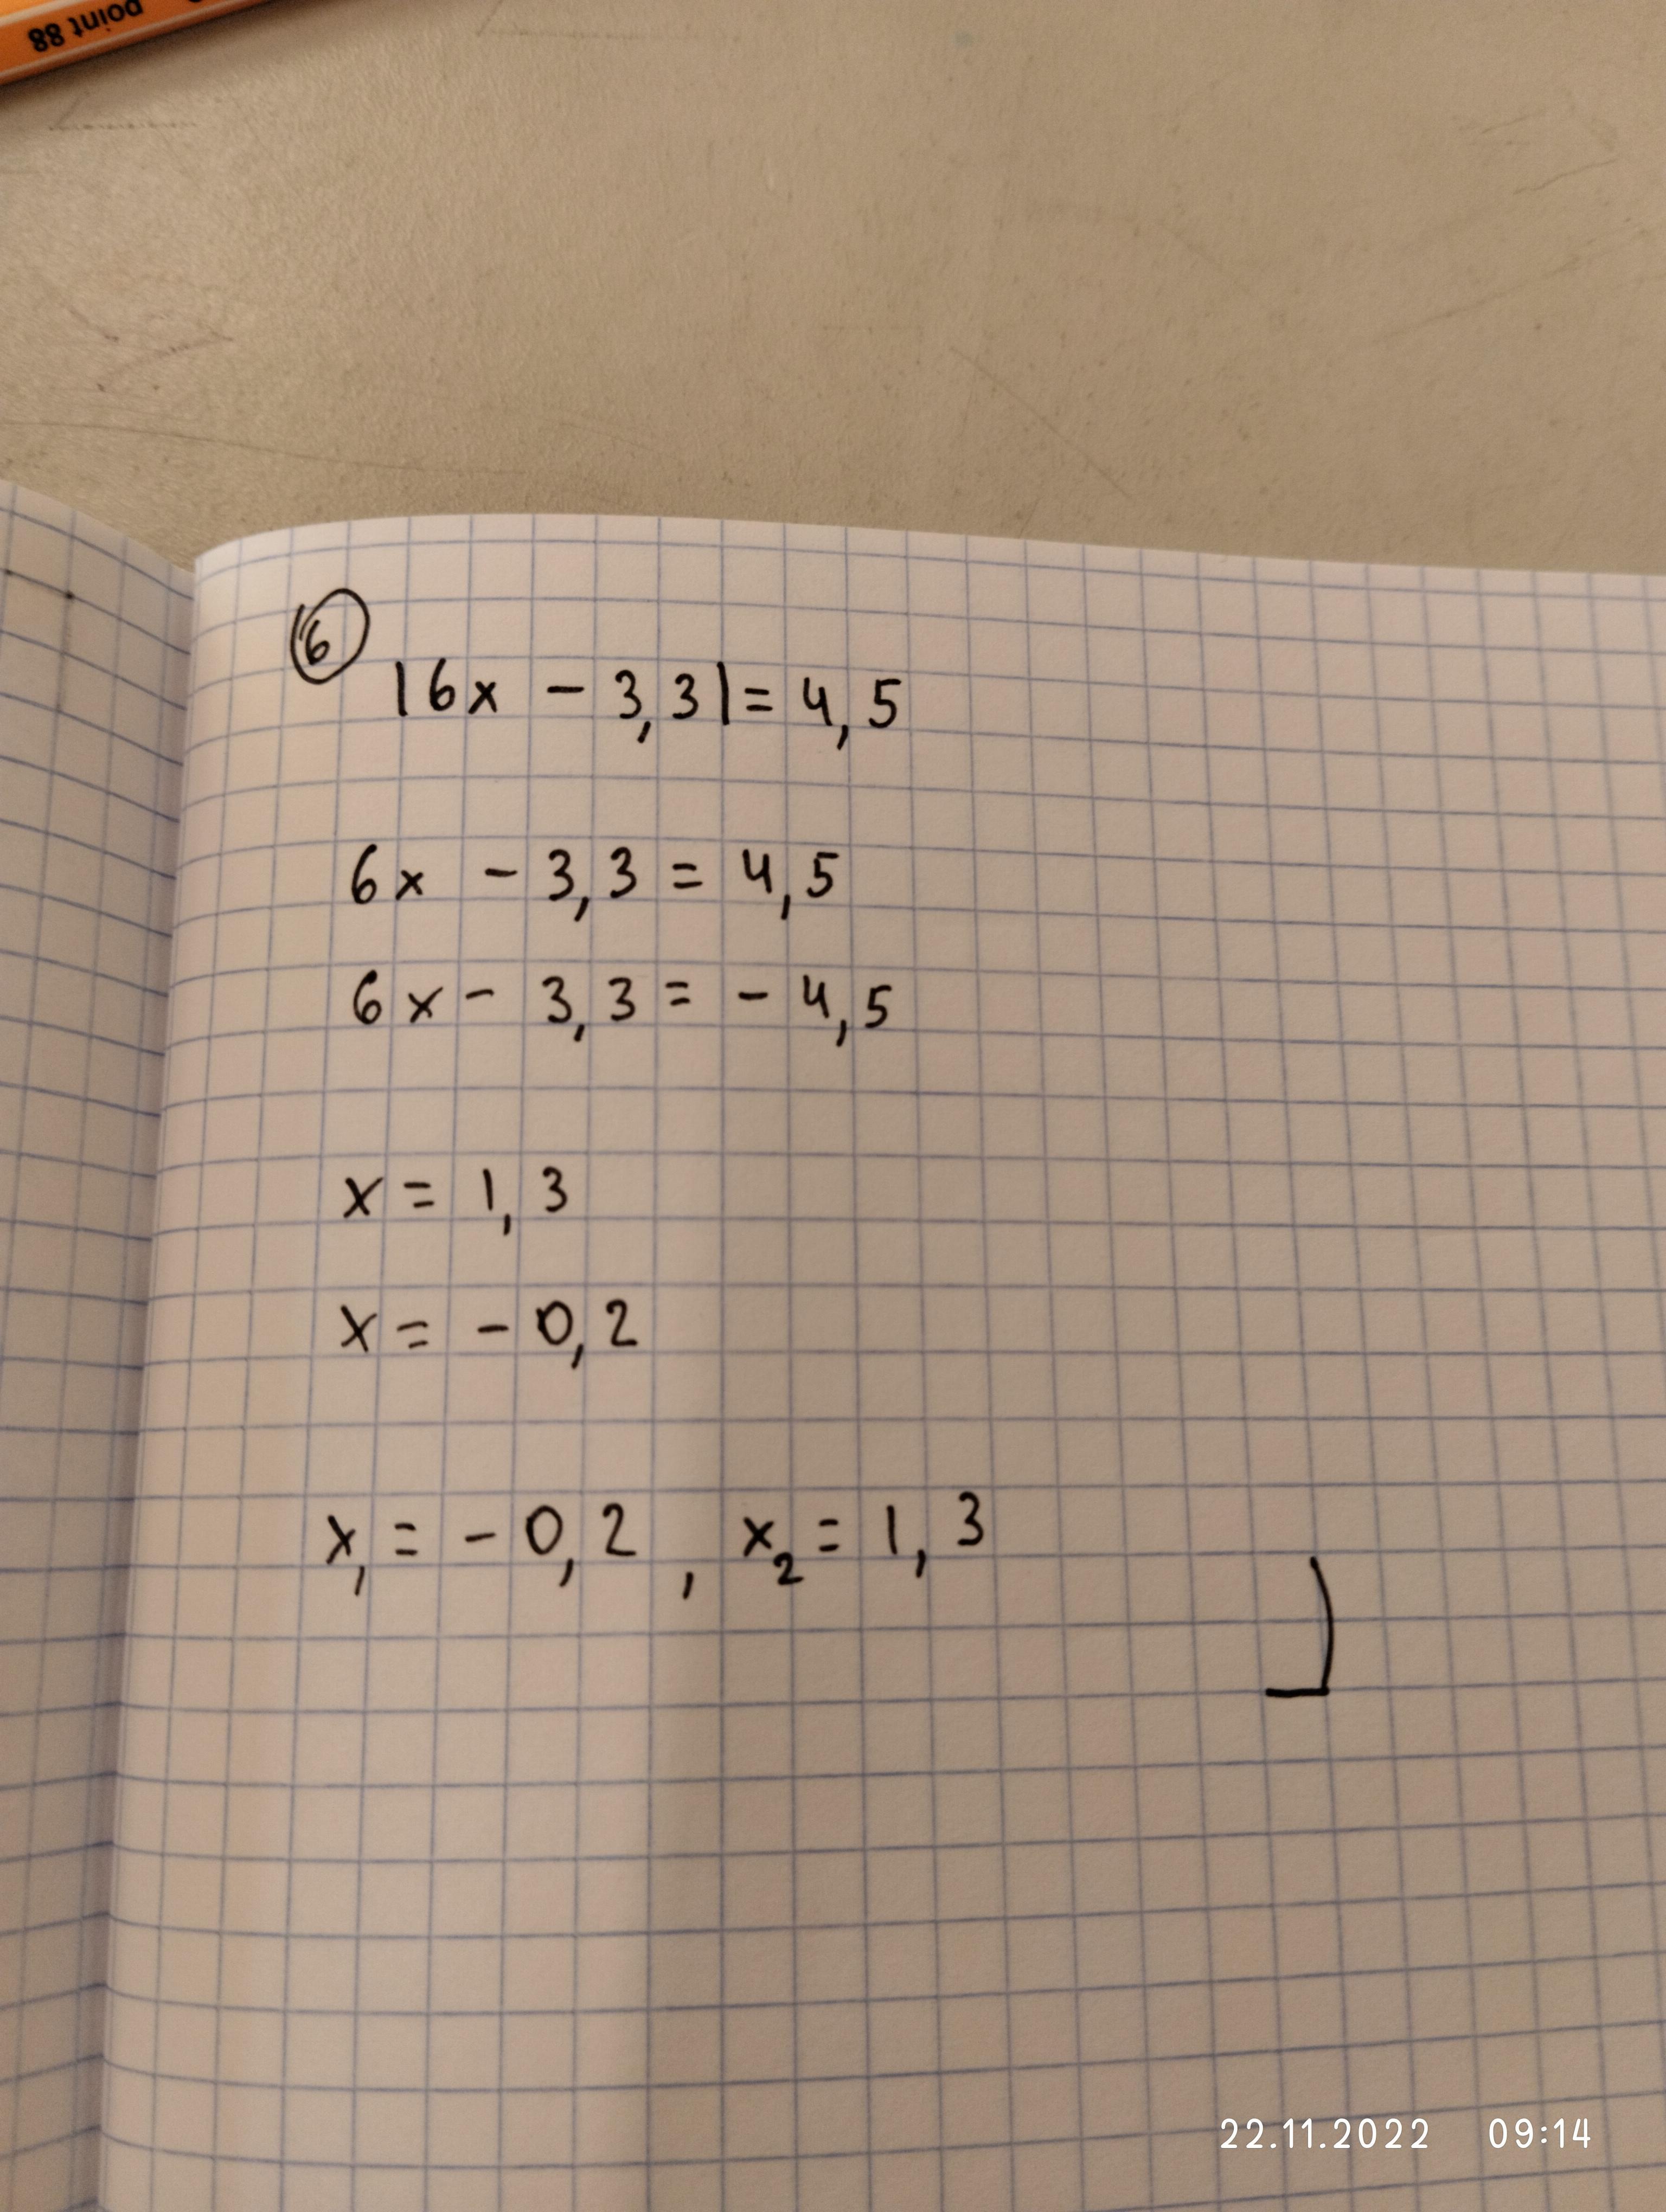 point 88
6
|6x - 3,3| = 4,5
6x - 3,3 = 4,5
6x - 3,3 = - 4,5
x = 1,3
x = - 0,2
x₁ = - 0,2 , x₂ = 1,3
22.11.2022 09:14